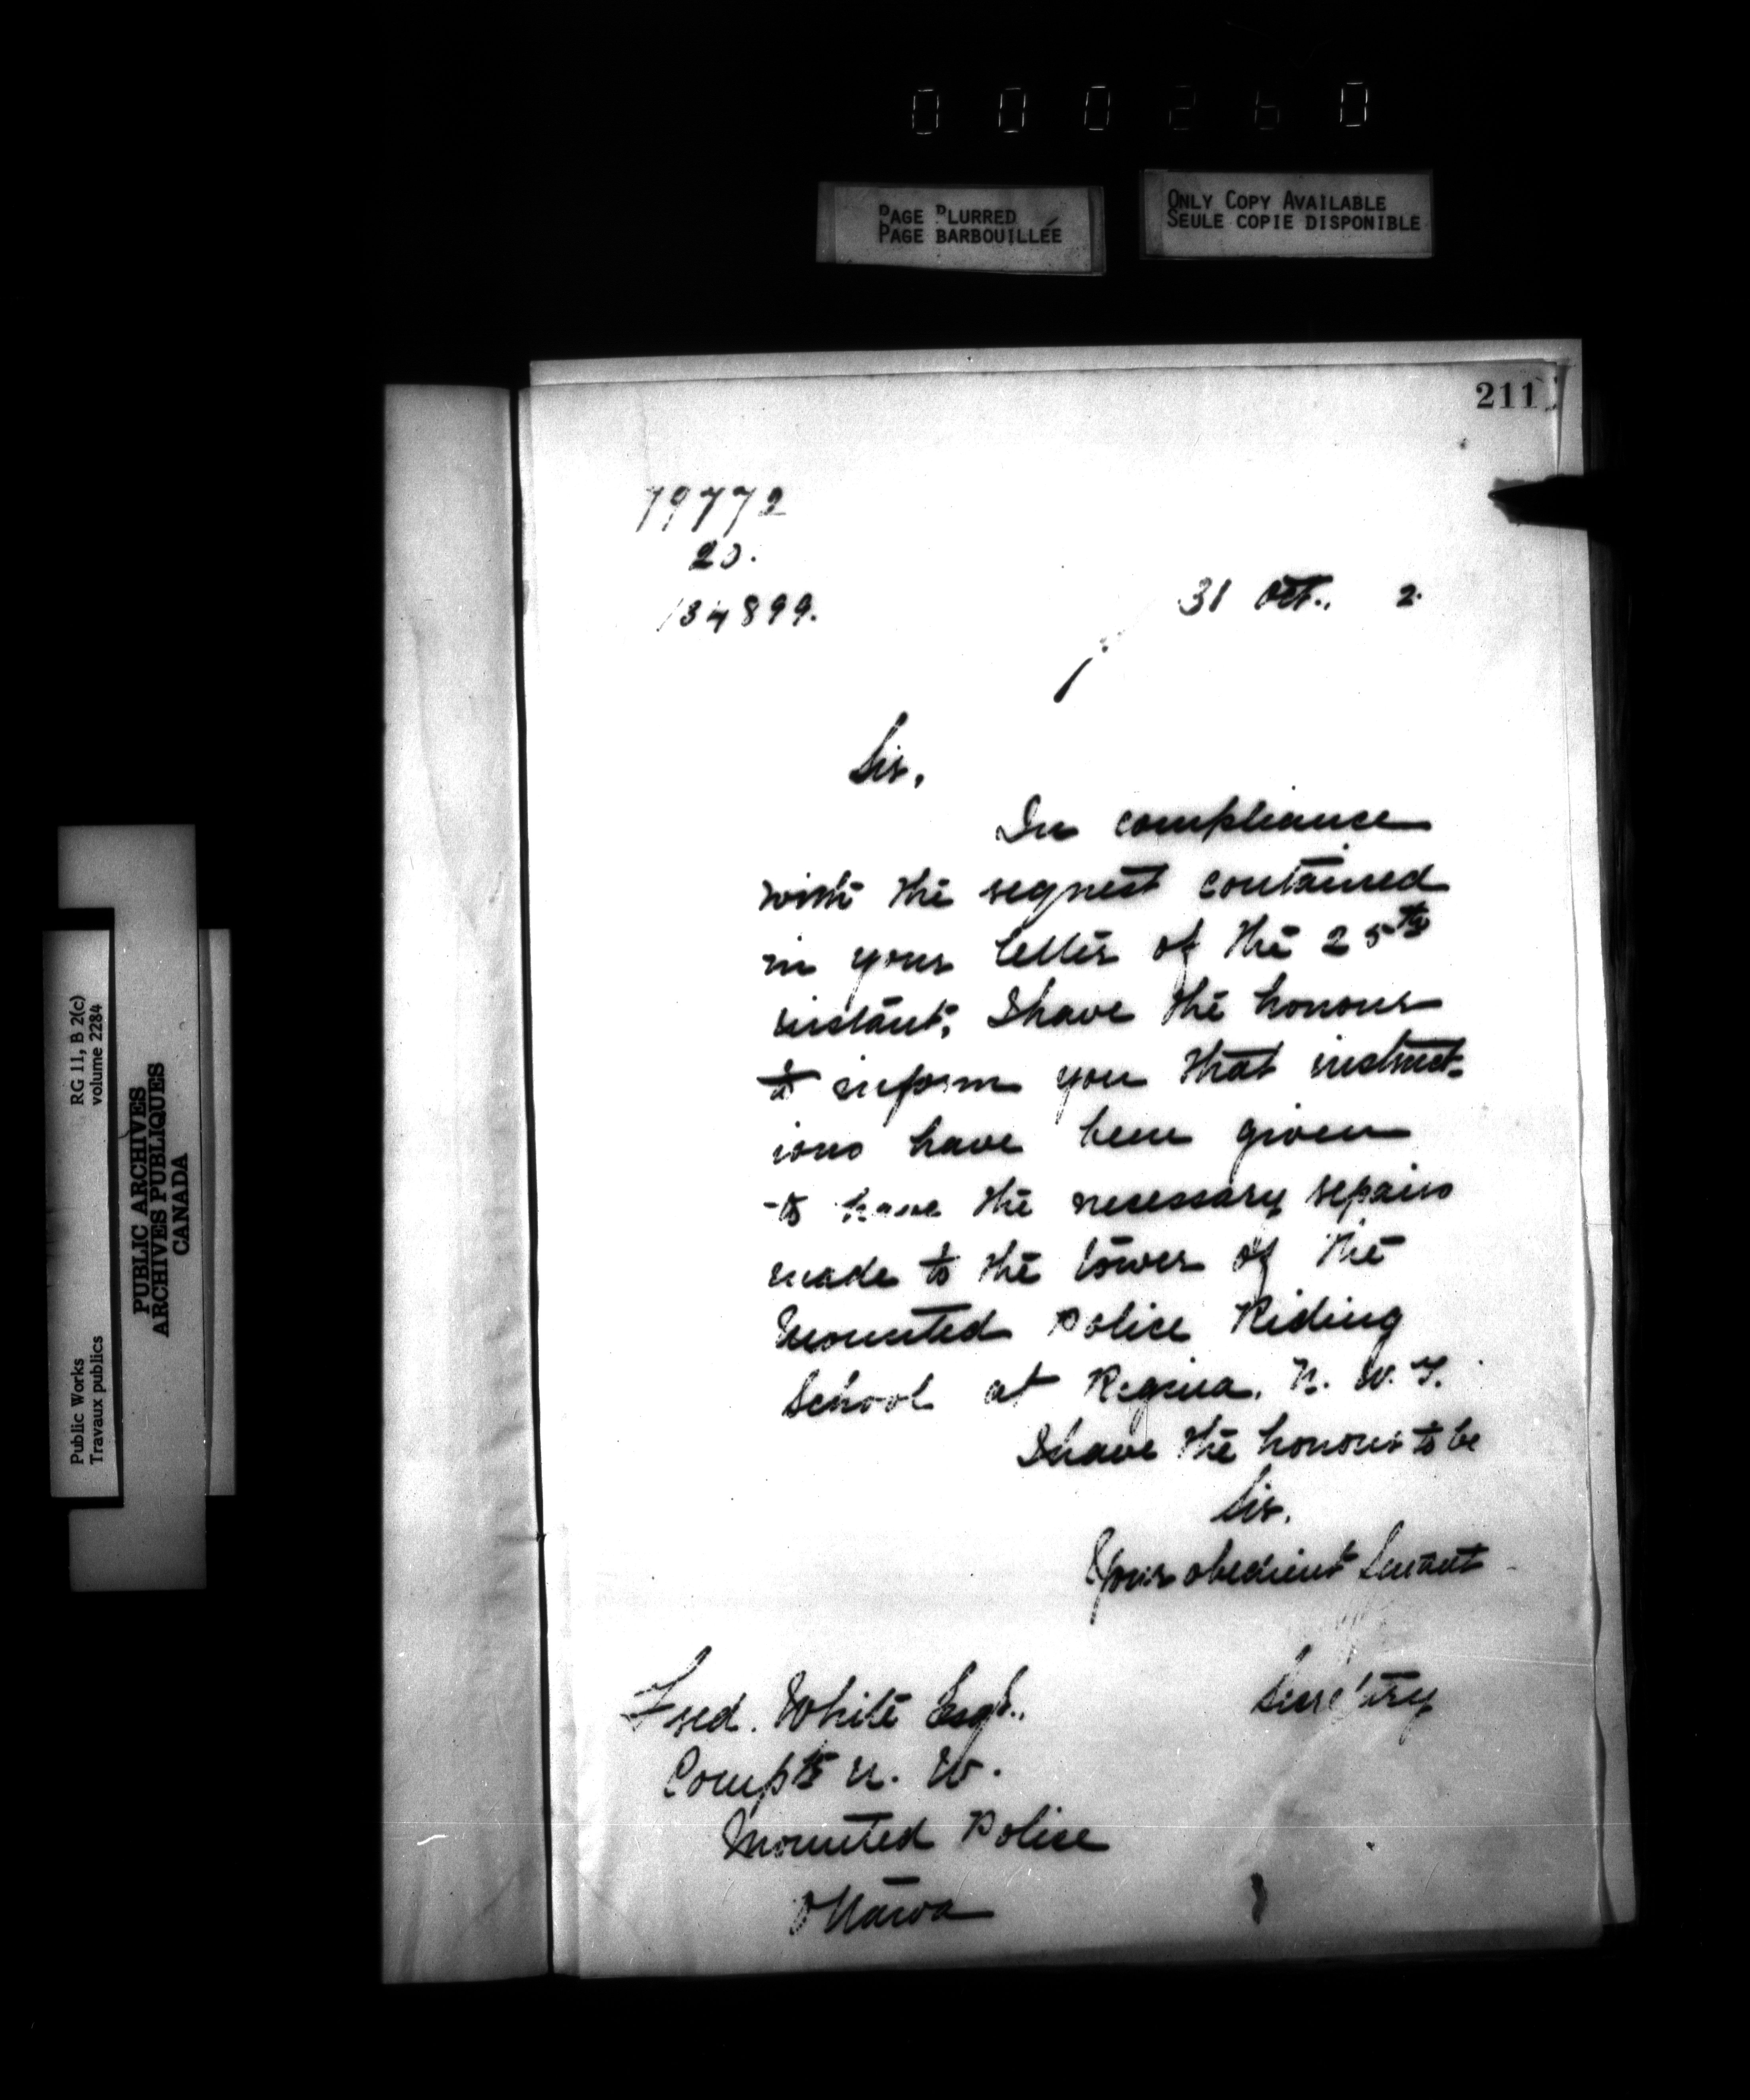 000260
PAGE BLURRED
PAGE BARBOUILLÉE
ONLY COPY AVAILABLE
SEULE COPIE DISPONIBLE
211
79772
20.
134899.
31 Oct., 2.
Sir,
In compliance
with the request contained
in your letter of the 25th
instant, I have the honour
to inform you that instruct-
ions have been given
to have the necessary repairs
made to the tower of the
Mounted Police Riding
School at Regina, N. W. T.
I have the honour to be
Sir,
Your obedient Servant
Secretary
Fred. White Esqr.,
Comptr N. W.
Mounted Police
Ottawa
RG 11, B 2(c)
volume 2284
Public Works
Travaux publics
PUBLIC ARCHIVES
ARCHIVES PUBLIQUES
CANADA